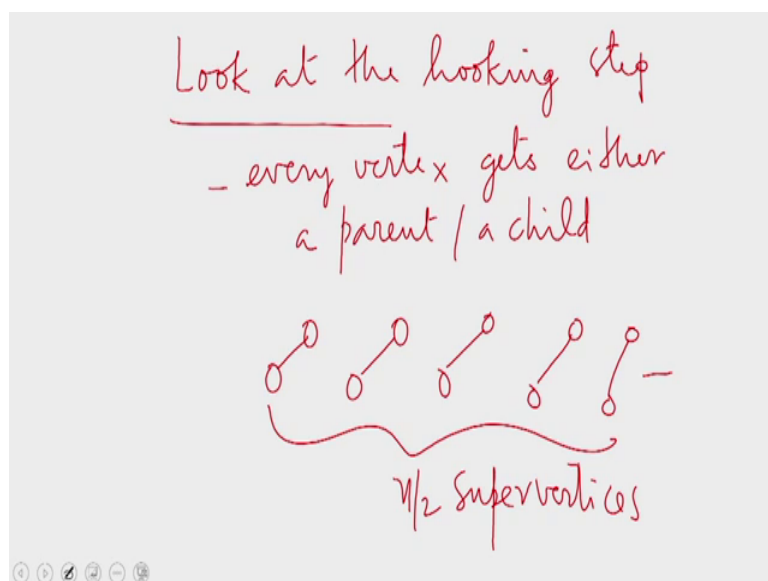 Look at the hooking step
- every vertex gets either
a parent / a child
n/2 supervertices